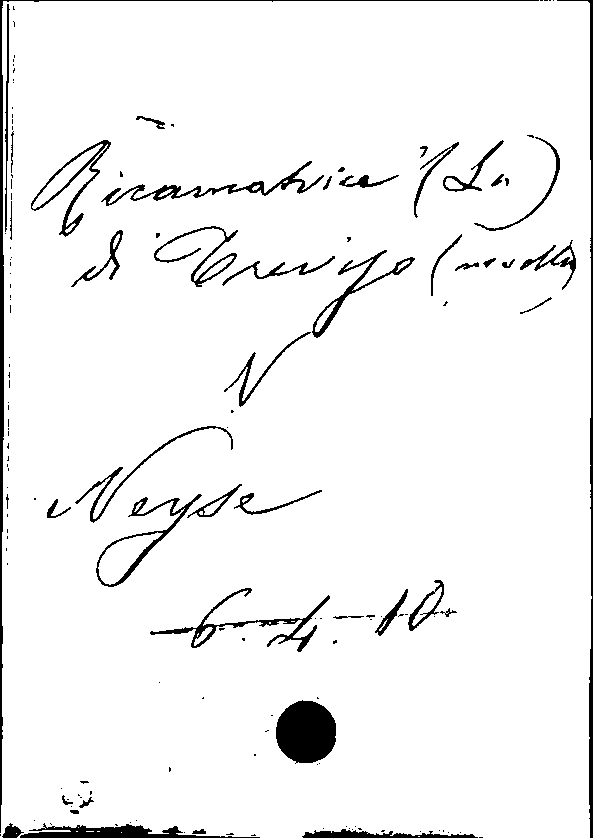 Ricamatrice (La)
di Trevijo (novella)
V
Neyse
6. 4. 10